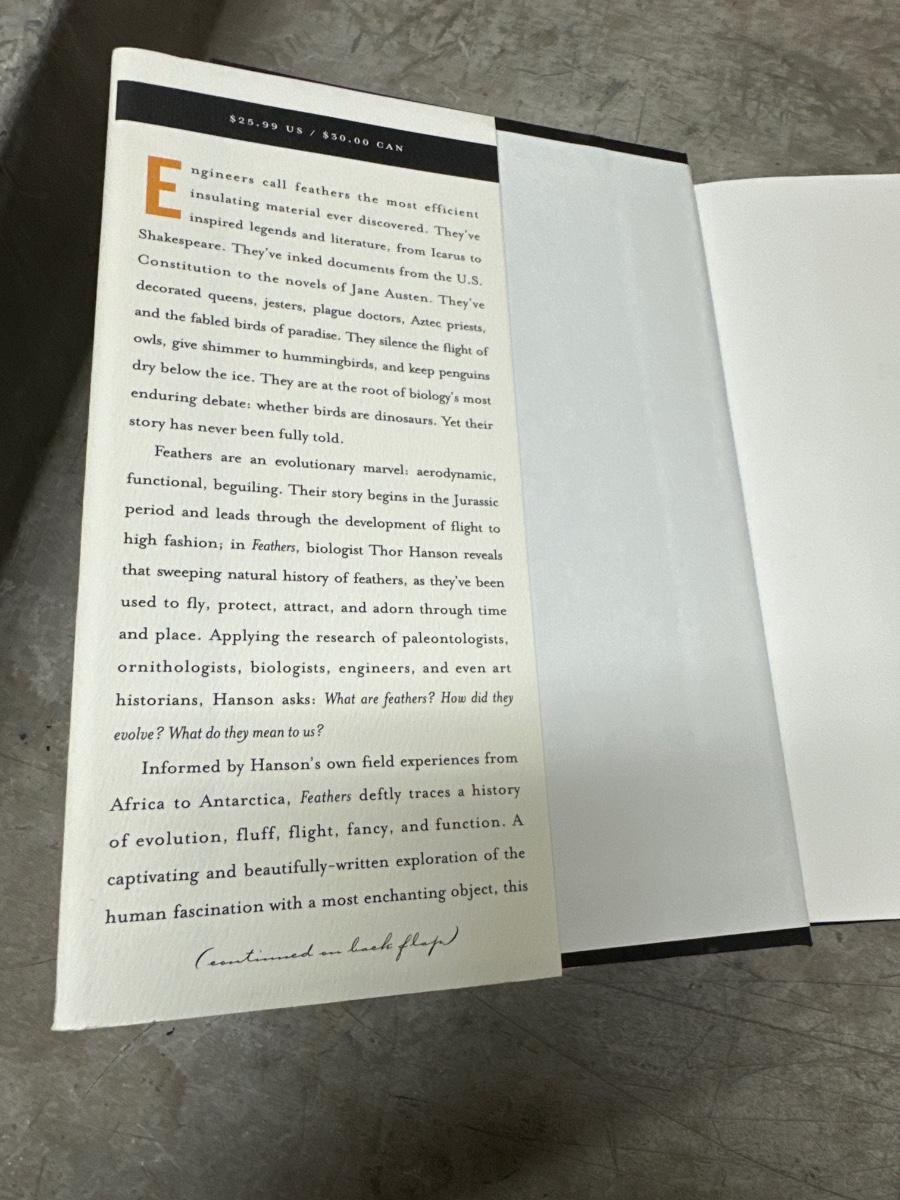 $25.99 US / $30.00 CAN
Engineers call feathers the most efficient
insulating material ever discovered. They've
inspired legends and literature, from Icarus to
Shakespeare. They've inked documents from the U.S.
Constitution to the novels of Jane Austen. They've
decorated queens, jesters, plague doctors, Aztec priests,
and the fabled birds of paradise. They silence the flight of
owls, give shimmer to hummingbirds, and keep penguins
dry below the ice. They are at the root of biology's most
enduring debate: whether birds are dinosaurs. Yet their
story has never been fully told.
Feathers are an evolutionary marvel: aerodynamic,
functional, beguiling. Their story begins in the Jurassic
period and leads through the development of flight to
high fashion; in Feathers, biologist Thor Hanson reveals
that sweeping natural history of feathers, as they've been
used to fly, protect, attract, and adorn through time
and place. Applying the research of paleontologists,
ornithologists, biologists, engineers, and even art
historians, Hanson asks: What are feathers? How did they
evolve? What do they mean to us?
Informed by Hanson's own field experiences from
Africa to Antarctica, Feathers deftly traces a history
of evolution, fluff, flight, fancy, and function. A
captivating and beautifully-written exploration of the
human fascination with a most enchanting object, this
(continued on back flap)